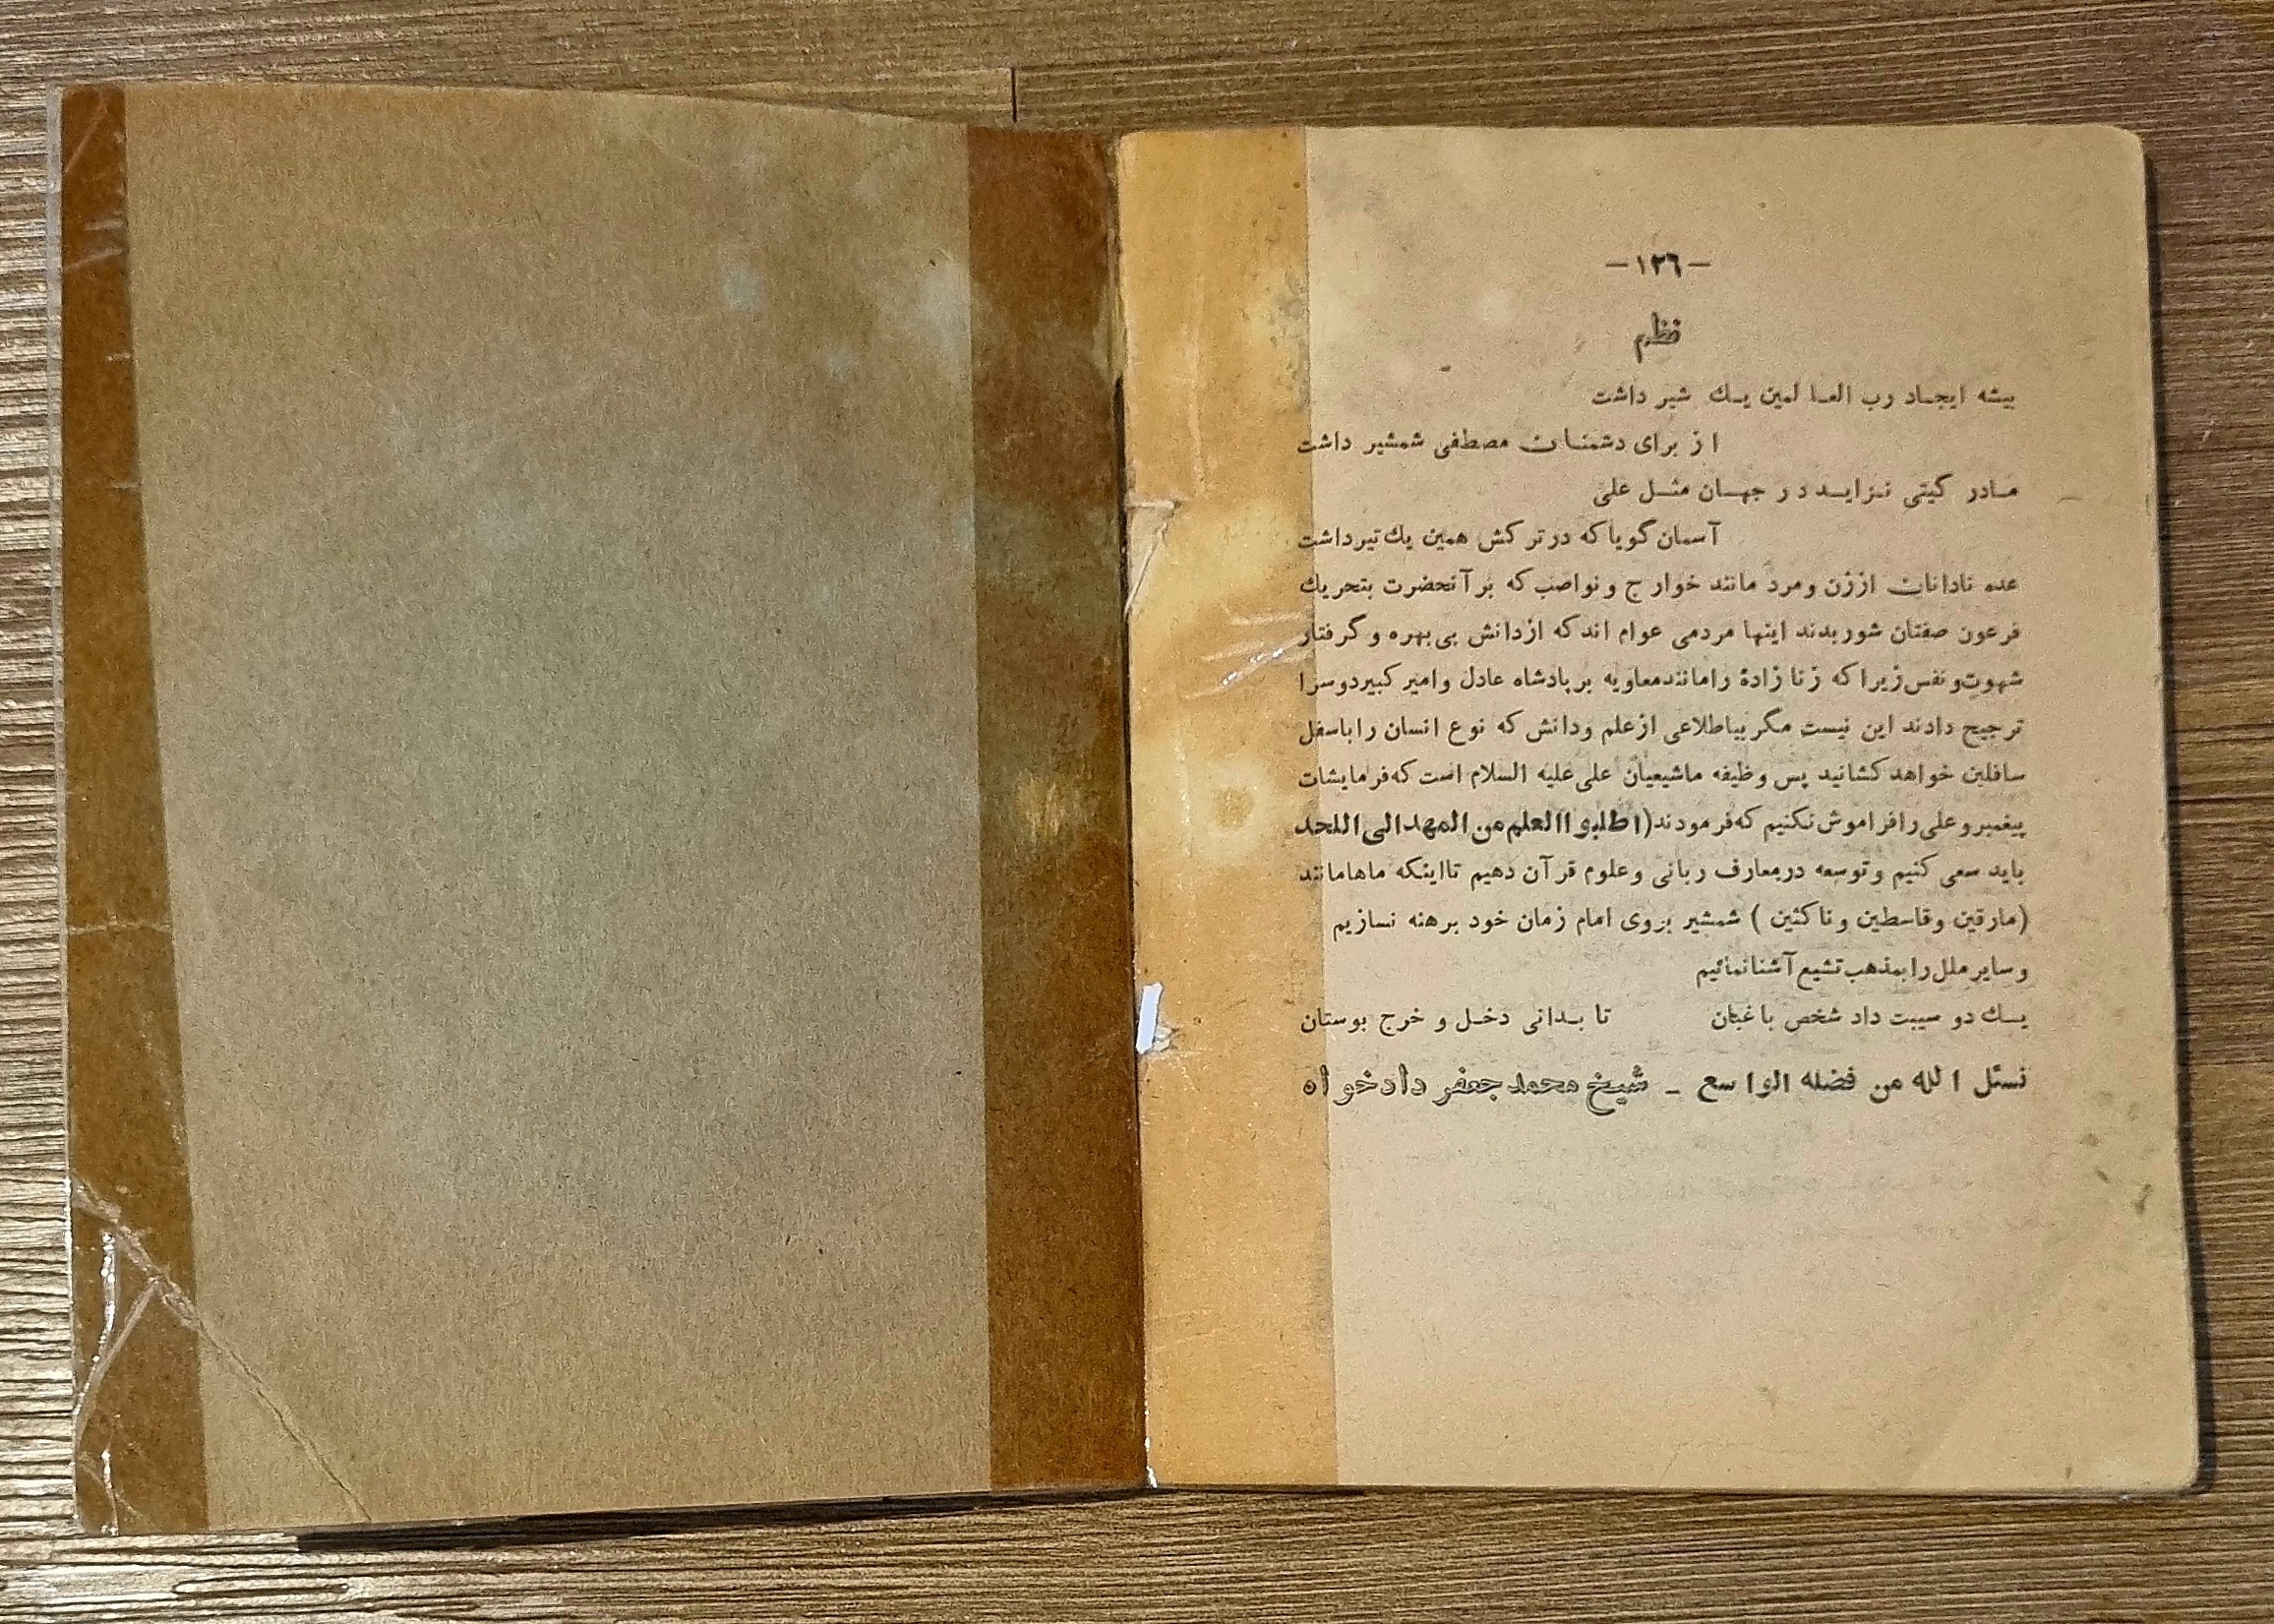 -١٢٦-
نظم
بیشه ایجاد رب العا لمین یک شیر داشت
از برای دشمنان مصطفی شمشیر داشت
مادر گیتی نزاید در جهان مثل علی
آسمان گویا که در ترکش همین یک تیر داشت
عده نادانان اززن ومرد مانند خوارج ونواصب که برآنحضرت بتحریک
فرعون صفتان شوریدند اینها مردمی عوام اند که ازدانش بی بهره وگرفتار
شهوت ونفس زیرا که زنا زادهٔ رامانند معاویه برپادشاه عادل وامیر کبیر دوسرا
ترجیح دادند این نیست مگر بیاطلاعی ازعلم ودانش که نوع انسان راباسفل
سافلین خواهد کشانید پس وظیفه ماشیعیان علی علیه السلام است که فرمایشات
پیغمبر و علی را فراموش نکنیم که فرمودند (اطلبوا العلم من المهد الی اللحد
باید سعی کنیم وتوسعه درمعارف ربانی وعلوم قرآن دهیم تااینکه ماهامانند
(مارقین وقاسطین وناکثین ) شمشیر بروی امام زمان خود برهنه نسازیم
وسایر ملل را بمذهب تشیع آشنا نمائیم
یک دو سیبت داد شخص باغبان تا بدانی دخل و خرج بوستان
نسئل الله من فضله الواسع - شیخ محمد جعفر دادخواه